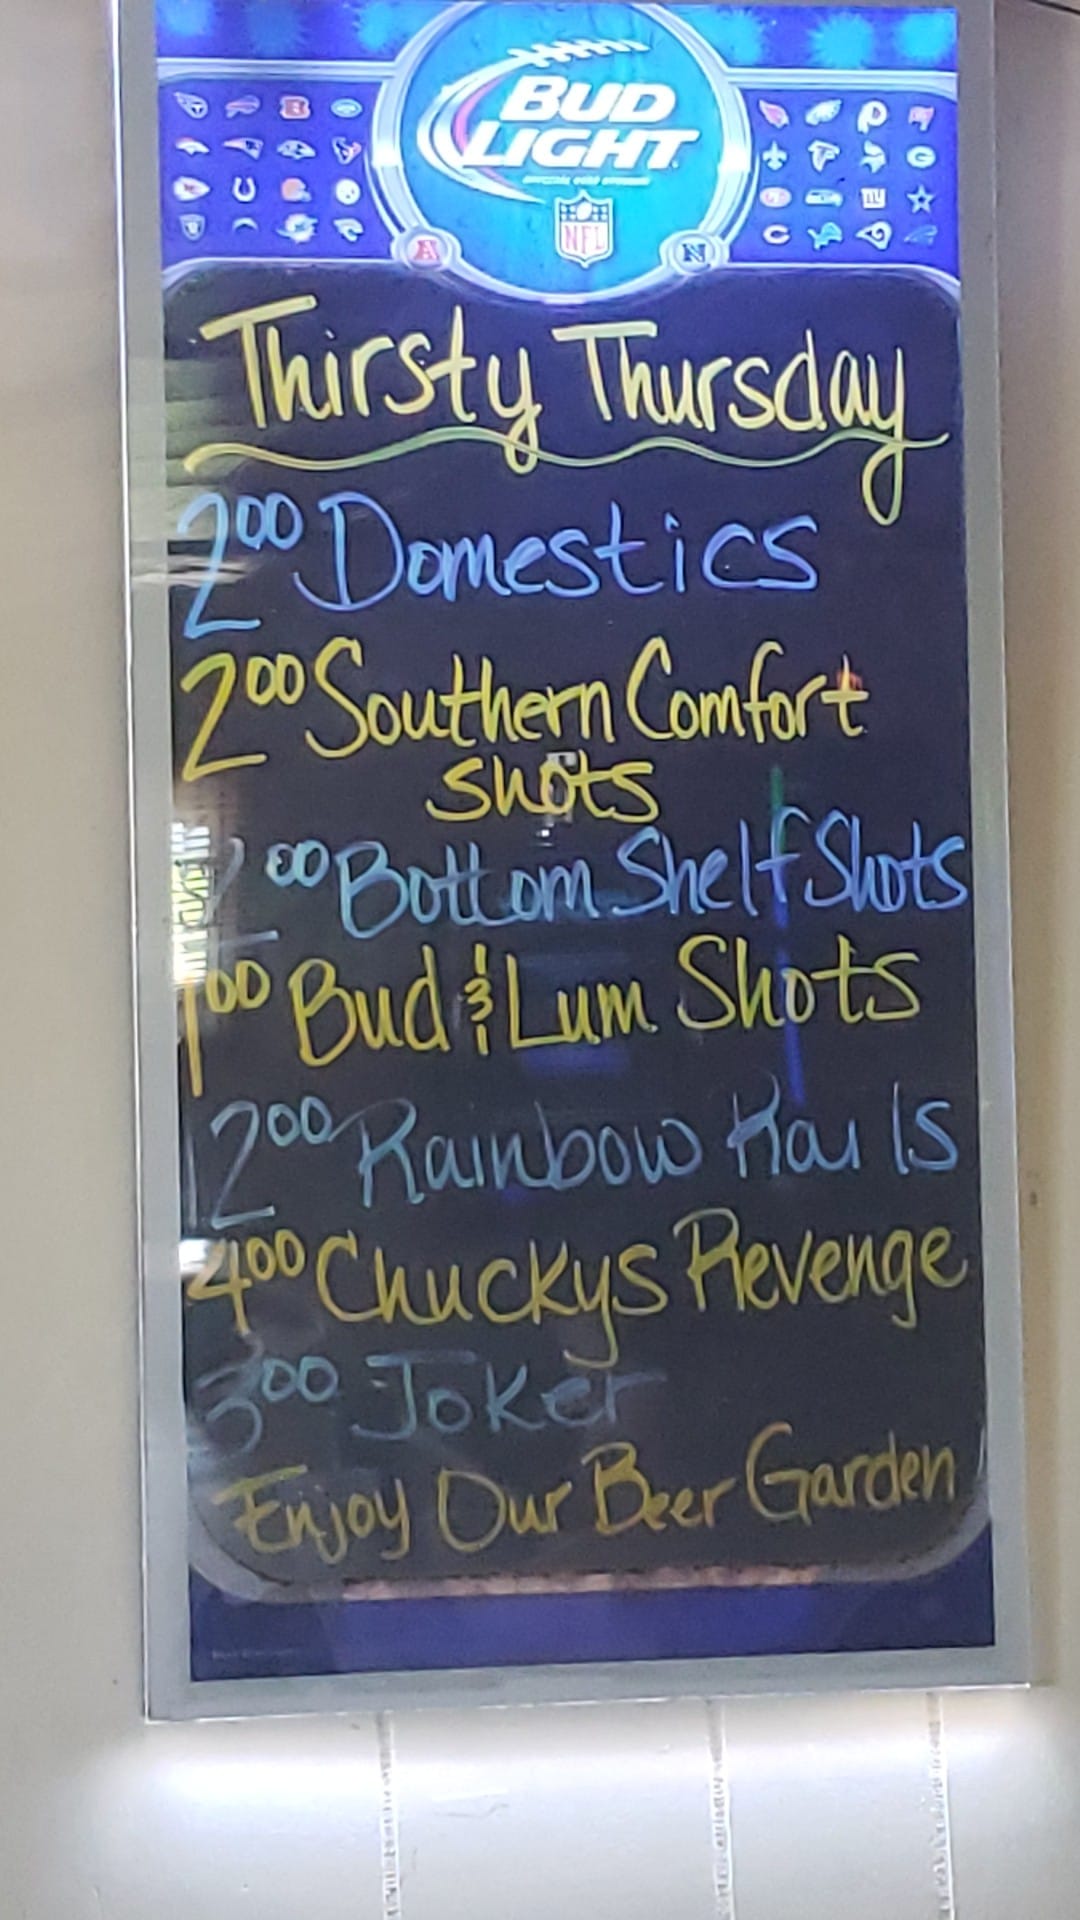 BUD
LIGHT
OFFICIAL BEER SPONSOR
NFL
A
N
Thirsty Thursday
2.00 Domestics
2.00 Southern Comfort
shots
2.00 Bottom Shelf Shots
1.00 Bud & Lum Shots
2.00 Rainbow Rails
4.00 Chuckys Revenge
3.00 Joker
Enjoy Our Beer Garden